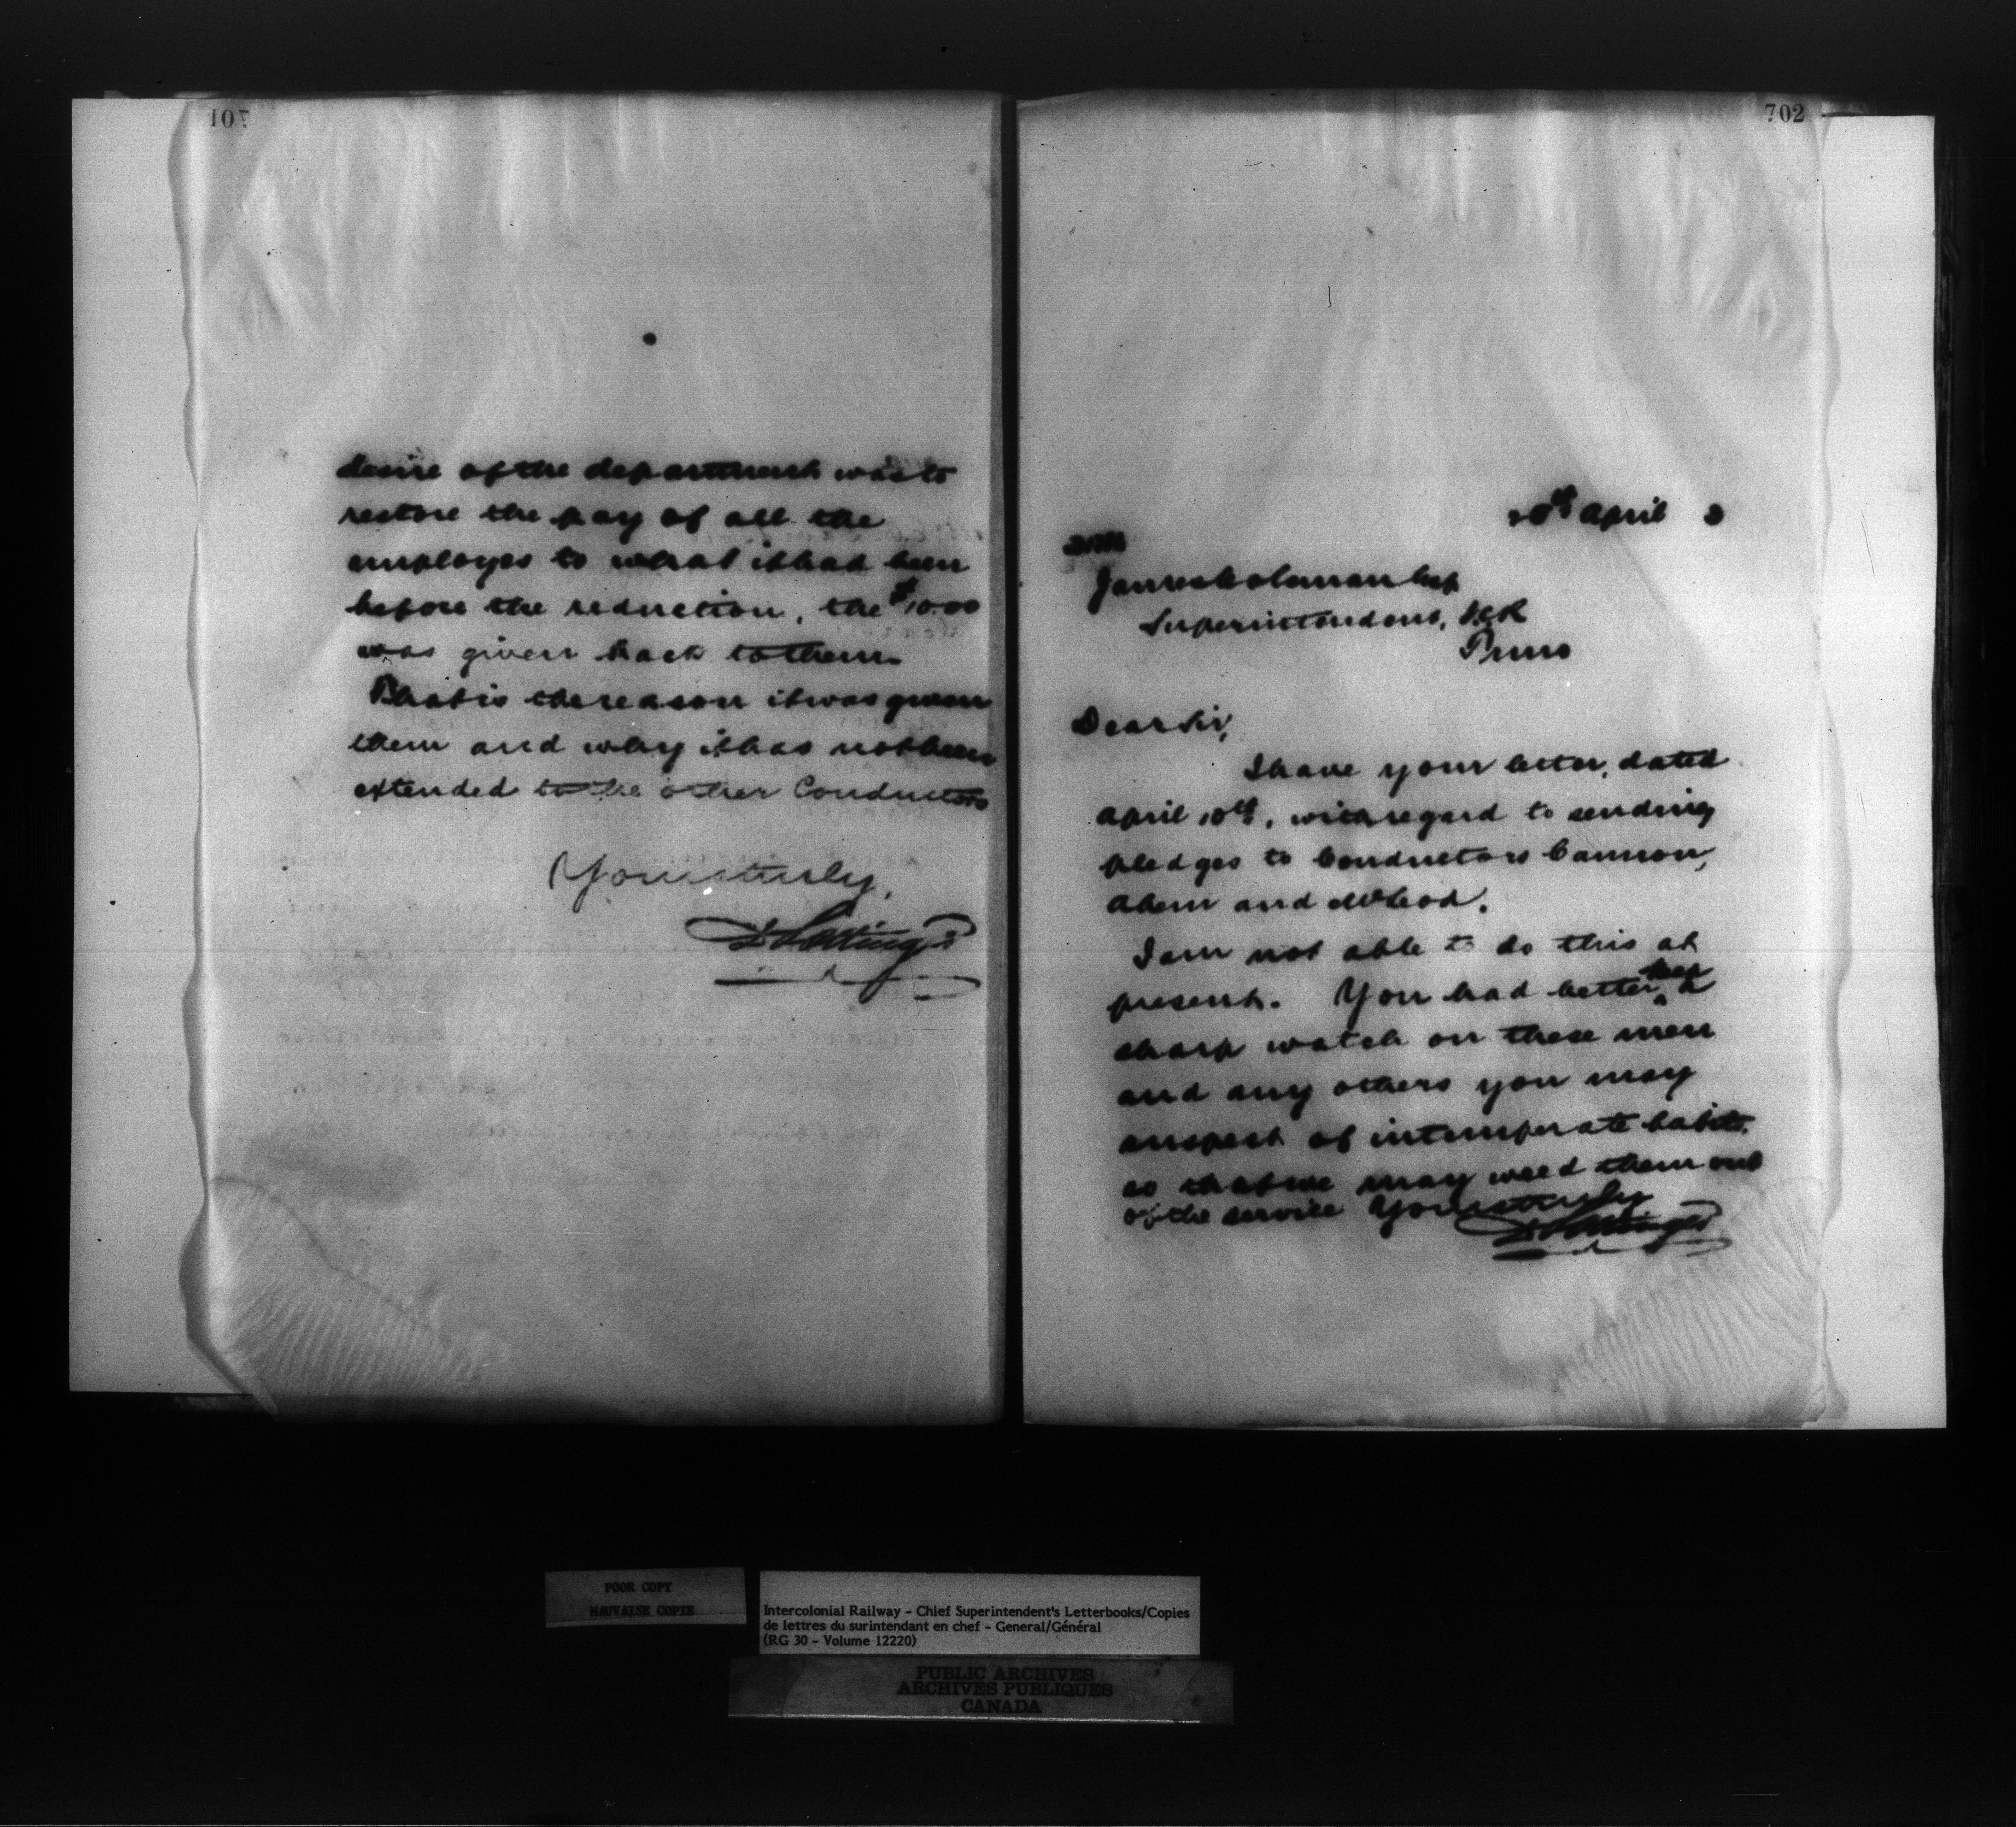 701
desire of the department was to
restore the pay of all the
employes to what it had been
before the reduction, the $10.00
was given back to them.
That is the reason it was given
them and why it has not been
extended to the other Conductors
Yours truly,
D Pottinger
702
20th April 3
James Coleman Esq
Superintendent, I.C.R
Truro
Dear Sir,
I have your letter, dated
April 10th, with regard to sending
pledges to Conductors Cannon,
Ahern and McLeod.
I am not able to do this at
present. You had better keep a
sharp watch on these men
and any others you may
suspect of intemperate habits,
so that we may weed them out
of the service Yours truly
D Pottinger
POOR COPY
MAUVAISE COPIE
Intercolonial Railway - Chief Superintendent's Letterbooks/Copies
de lettres du surintendant en chef - General/Général
(RG 30 - Volume 12220)
PUBLIC ARCHIVES
ARCHIVES PUBLIQUES
CANADA